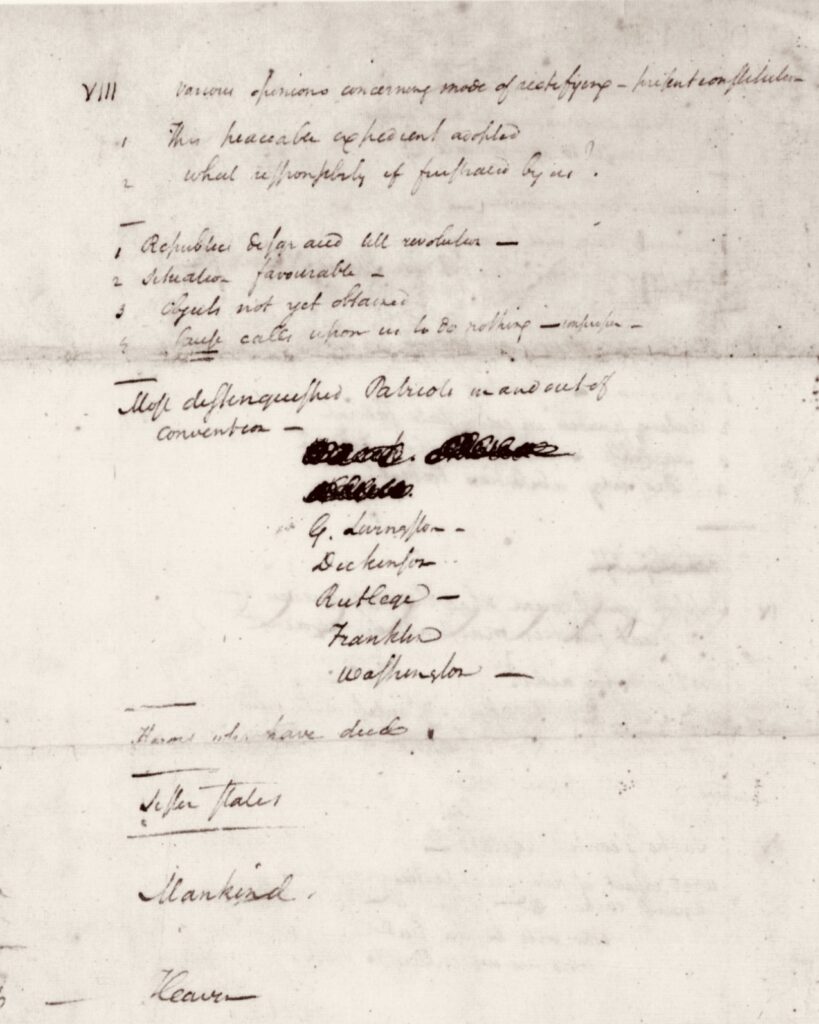 VIII various opinions concerning mode of rectifying – present constitution
1 This peaceable expedient adopted
2 what responsibility if frustrated by us?
1 Republic
2 Situation favourable –
3 Objects not yet obtained
calls upon us to do nothing – improper –
Most distinguished Patriots in and out of
convention –
G. Livingston –
Dickinson
Rutlege –
Franklin
Washington –
Heroes who have died
Sister States
Mankind.
– Heaven